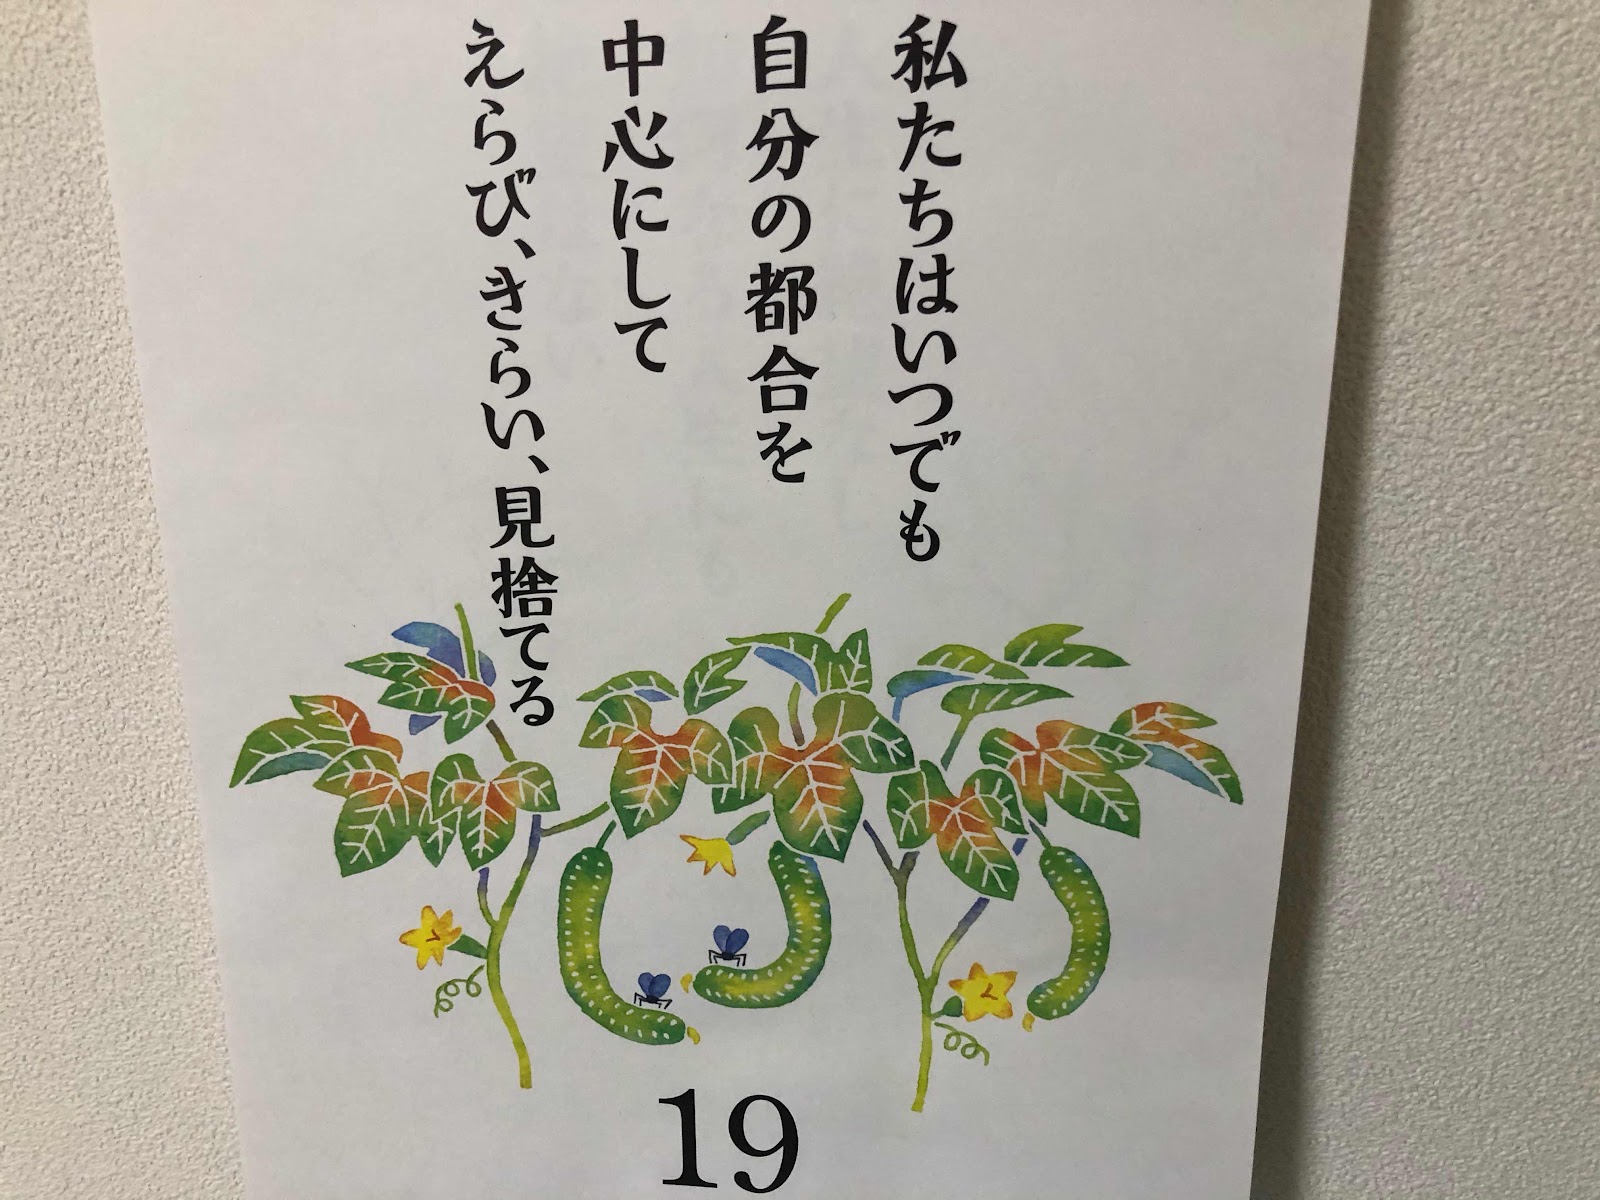 私たちはいつでも
自分の都合を
中心にして
えらび、きらい、見捨てる
19